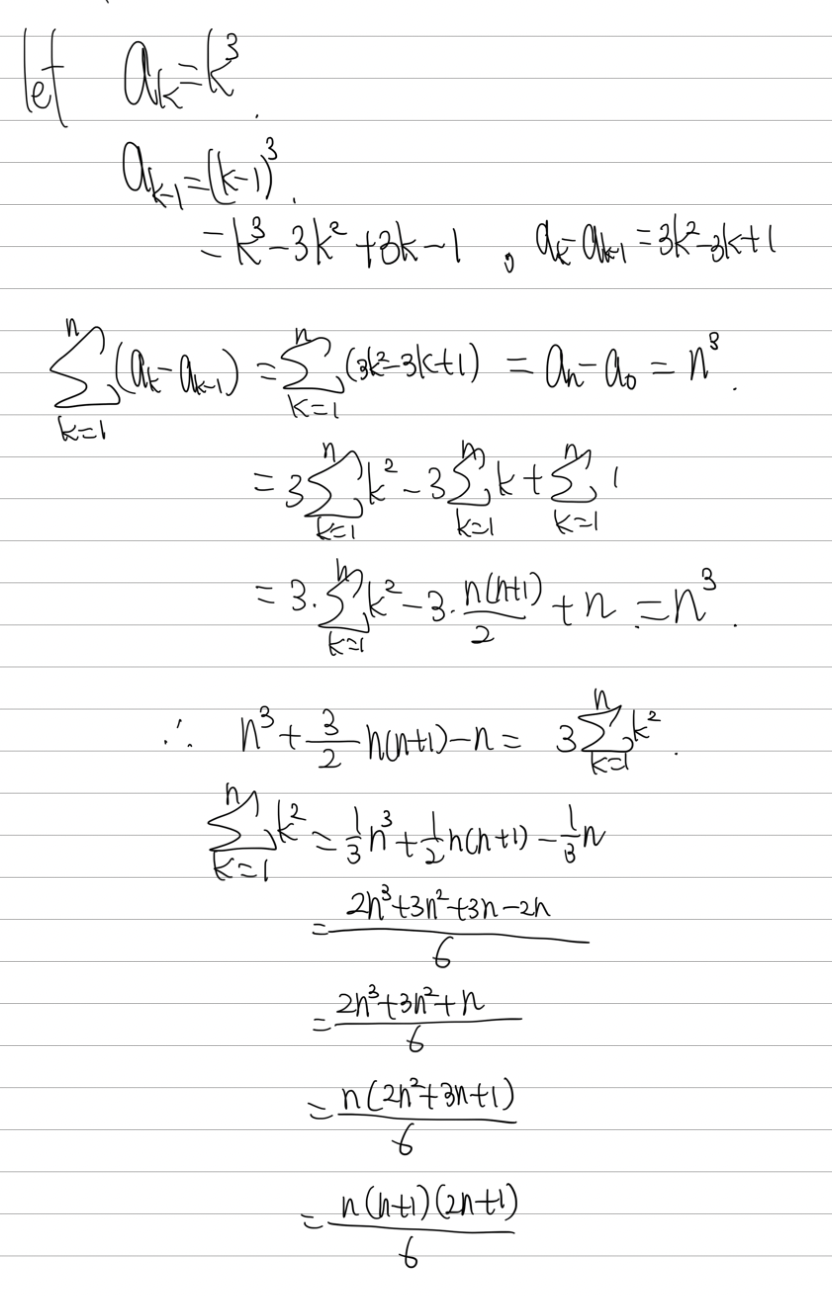 let a_k = k³.
a_{k-1} = (k-1)³.
= k³ - 3k² + 3k - 1 , a_k - a_{k-1} = 3k² - 3k + 1
∑_{k=1}^{n} (a_k - a_{k-1}) = ∑_{k=1}^{n} (3k² - 3k + 1) = a_n - a_0 = n³.
= 3∑_{k=1}^{n} k² - 3∑_{k=1}^{n} k + ∑_{k=1}^{n} 1
= 3·∑_{k=1}^{n} k² - 3·\frac{n(n+1)}{2} + n = n³.
∴ n³ + \frac{3}{2} n(n+1) - n = 3∑_{k=1}^{n} k².
∑_{k=1}^{n} k² = \frac{1}{3}n³ + \frac{1}{2}n(n+1) - \frac{1}{3}n
= \frac{2n³+3n²+3n-2n}{6}
= \frac{2n³+3n²+n}{6}
= \frac{n(2n²+3n+1)}{6}
= \frac{n(n+1)(2n+1)}{6}